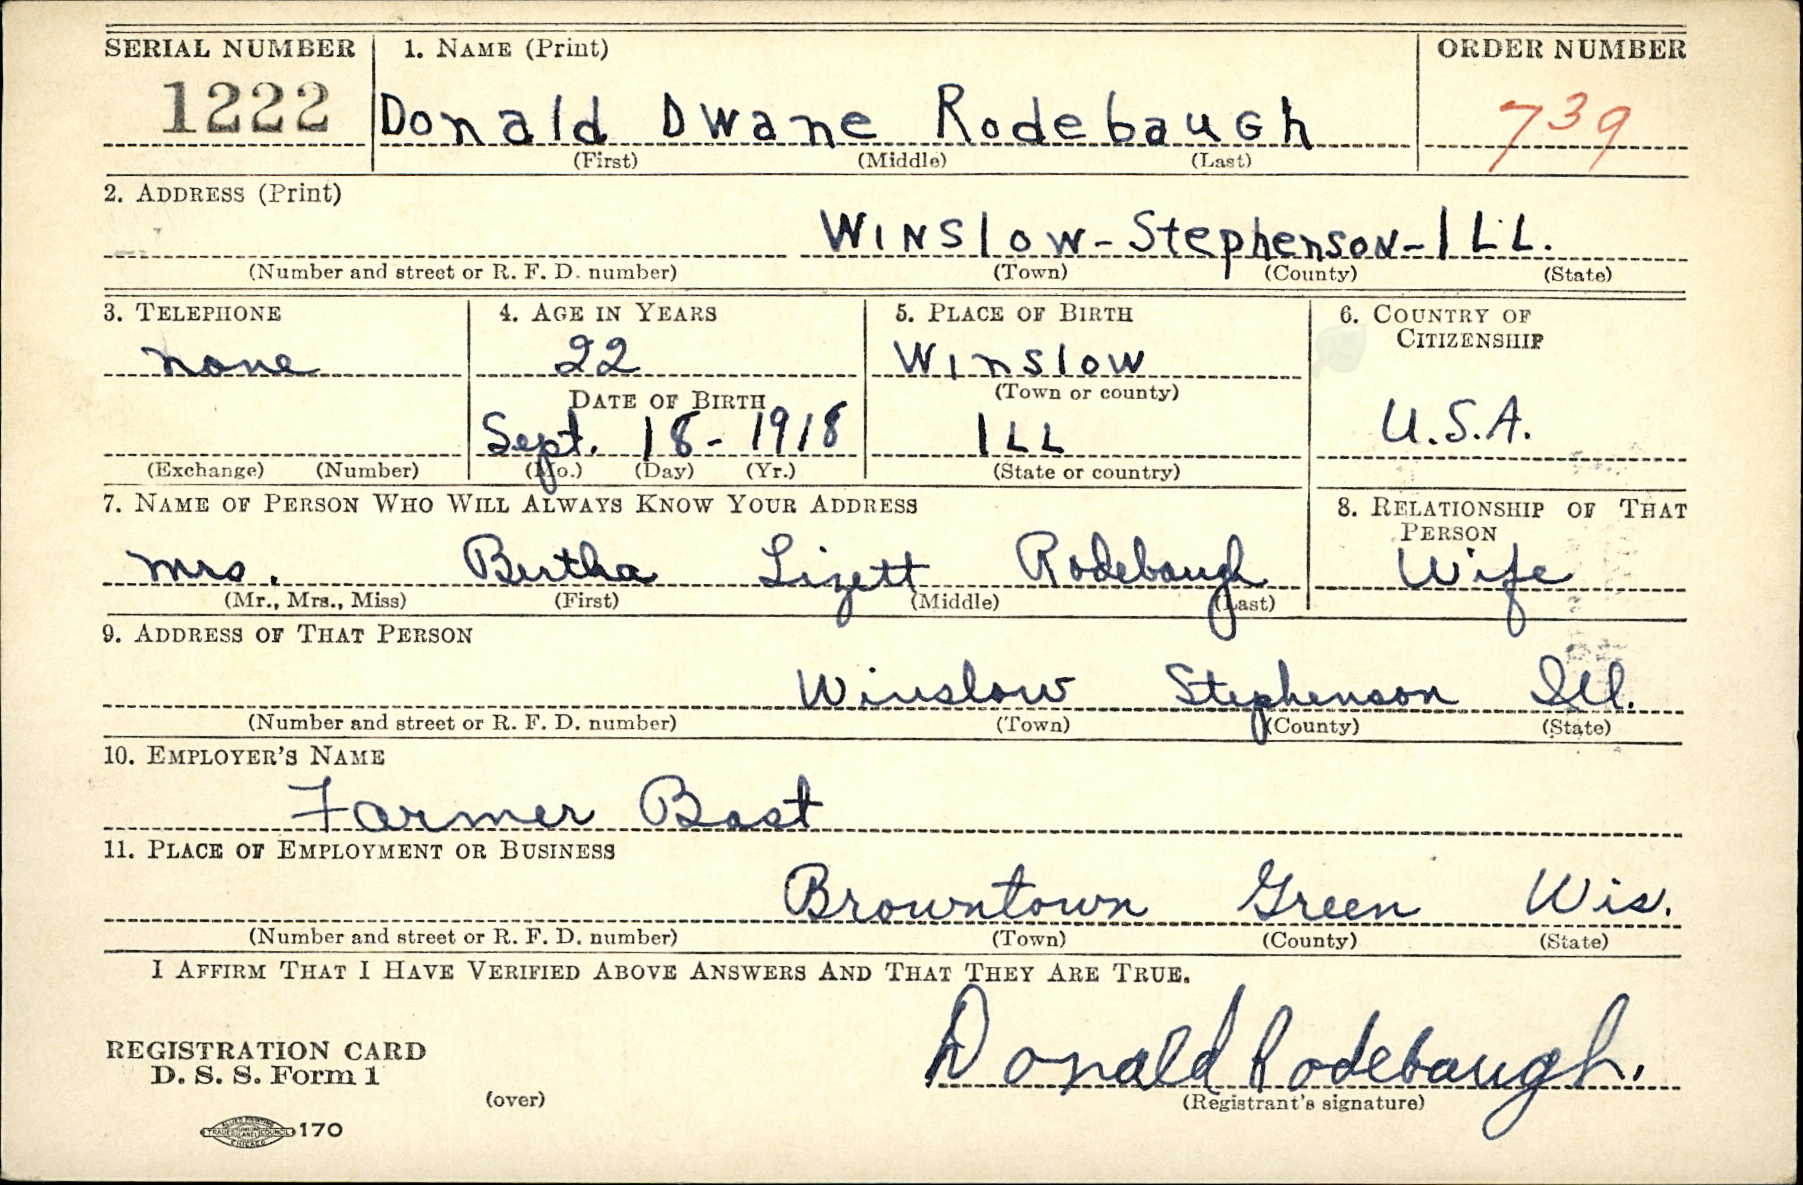 SERIAL NUMBER 1. NAME (Print) ORDER NUMBER
1222 Donald Dwane Rodebaugh 739
(First) (Middle) (Last)
2. ADDRESS (Print)
Winslow-Stephenson-ILL.
(Number and street or R. F. D. number) (Town) (County) (State)
3. TELEPHONE 4. AGE IN YEARS 5. PLACE OF BIRTH 6. COUNTRY OF CITIZENSHIP
none 22 Winslow
DATE OF BIRTH (Town or county)
Sept. 18-1918 ILL U.S.A.
(Exchange) (Number) (Mo.) (Day) (Yr.) (State or country)
7. NAME OF PERSON WHO WILL ALWAYS KNOW YOUR ADDRESS 8. RELATIONSHIP OF THAT PERSON
Mrs. Bertha Lizett Rodebaugh Wife
(Mr., Mrs., Miss) (First) (Middle) (Last)
9. ADDRESS OF THAT PERSON
Winslow Stephenson Ill.
(Number and street or R. F. D. number) (Town) (County) (State)
10. EMPLOYER'S NAME
Farmer Bast
11. PLACE OF EMPLOYMENT OR BUSINESS
Browntown Green Wis.
(Number and street or R. F. D. number) (Town) (County) (State)
I AFFIRM THAT I HAVE VERIFIED ABOVE ANSWERS AND THAT THEY ARE TRUE.
Donald Rodebaugh.
REGISTRATION CARD
D. S. S. Form 1
(over) (Registrant's signature)
170